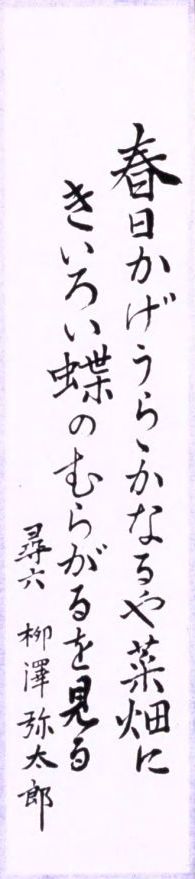 春日かげうらゝかなるや菜畑に
きいろい蝶のむらがるを見る
尋六 柳澤弥太郎